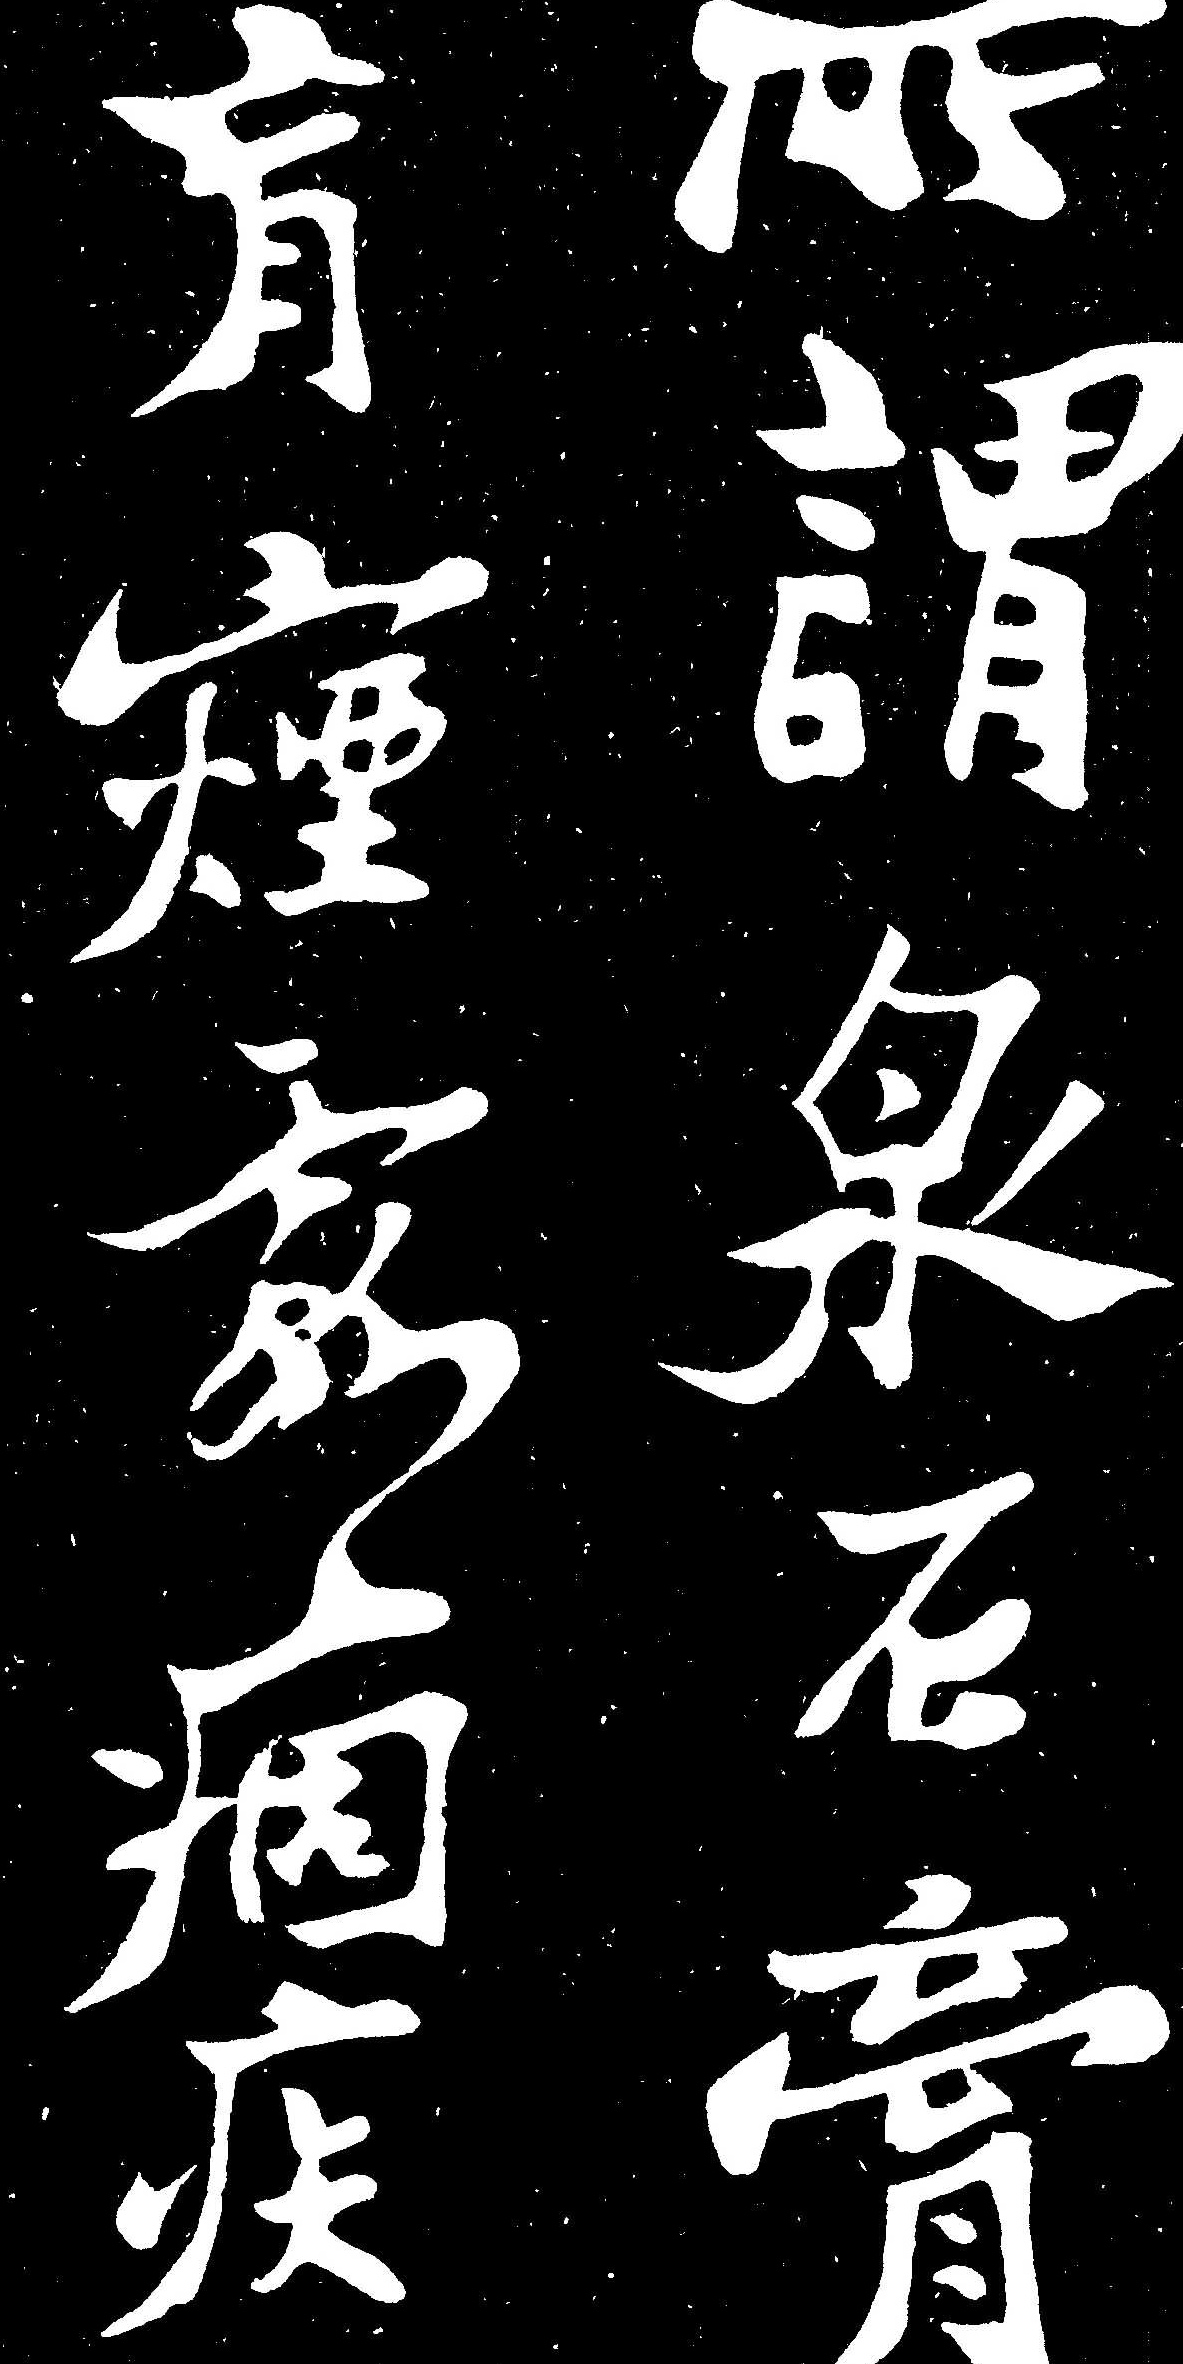 所謂泉石膏
肓煙霞痼疾